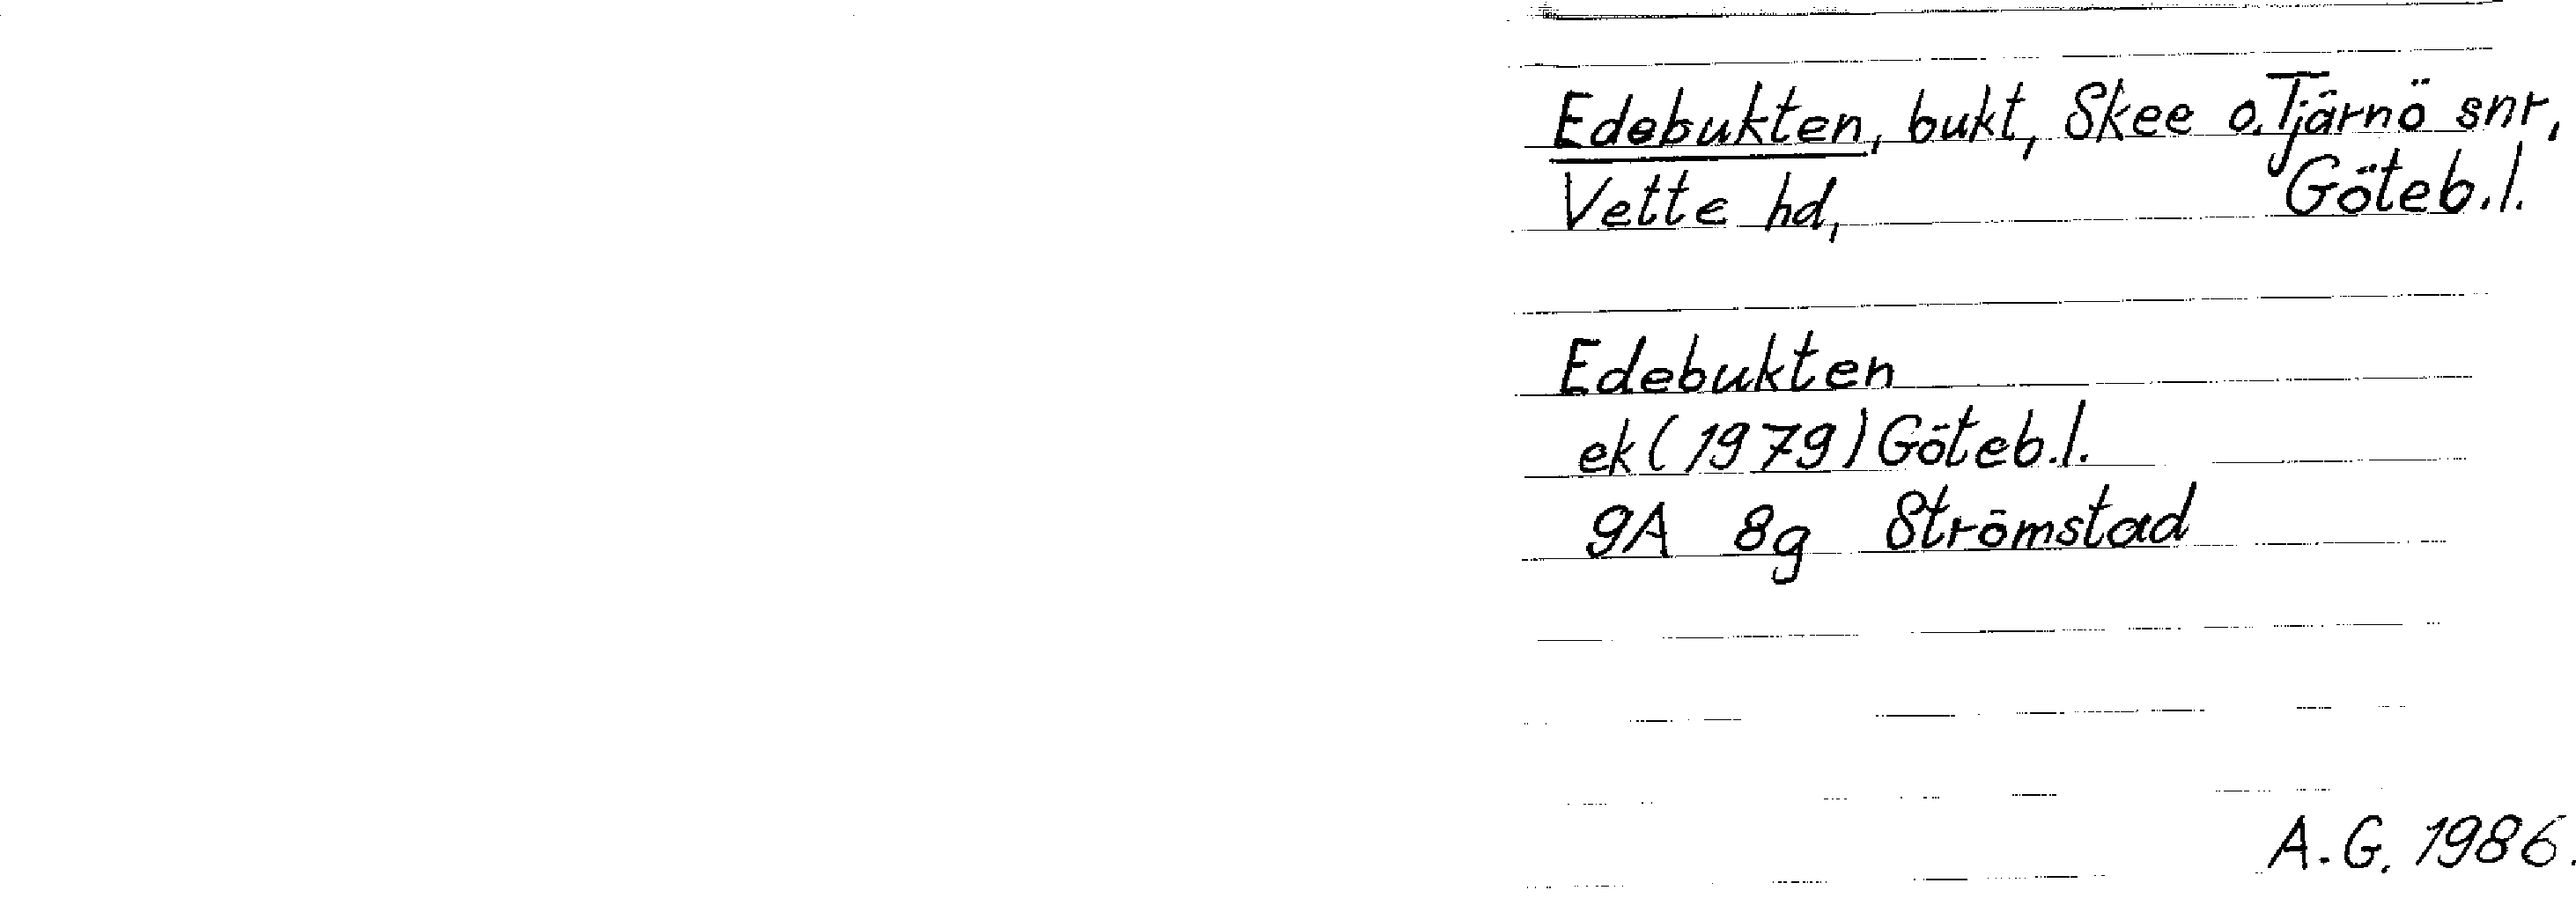 Edebukten, bukt, Skee o. Tjärnö snr,
Vette hd, Göteb.l.
Edebukten
ek (1979) Göteb.l.
9A 8g Strömstad
A.G. 1986.